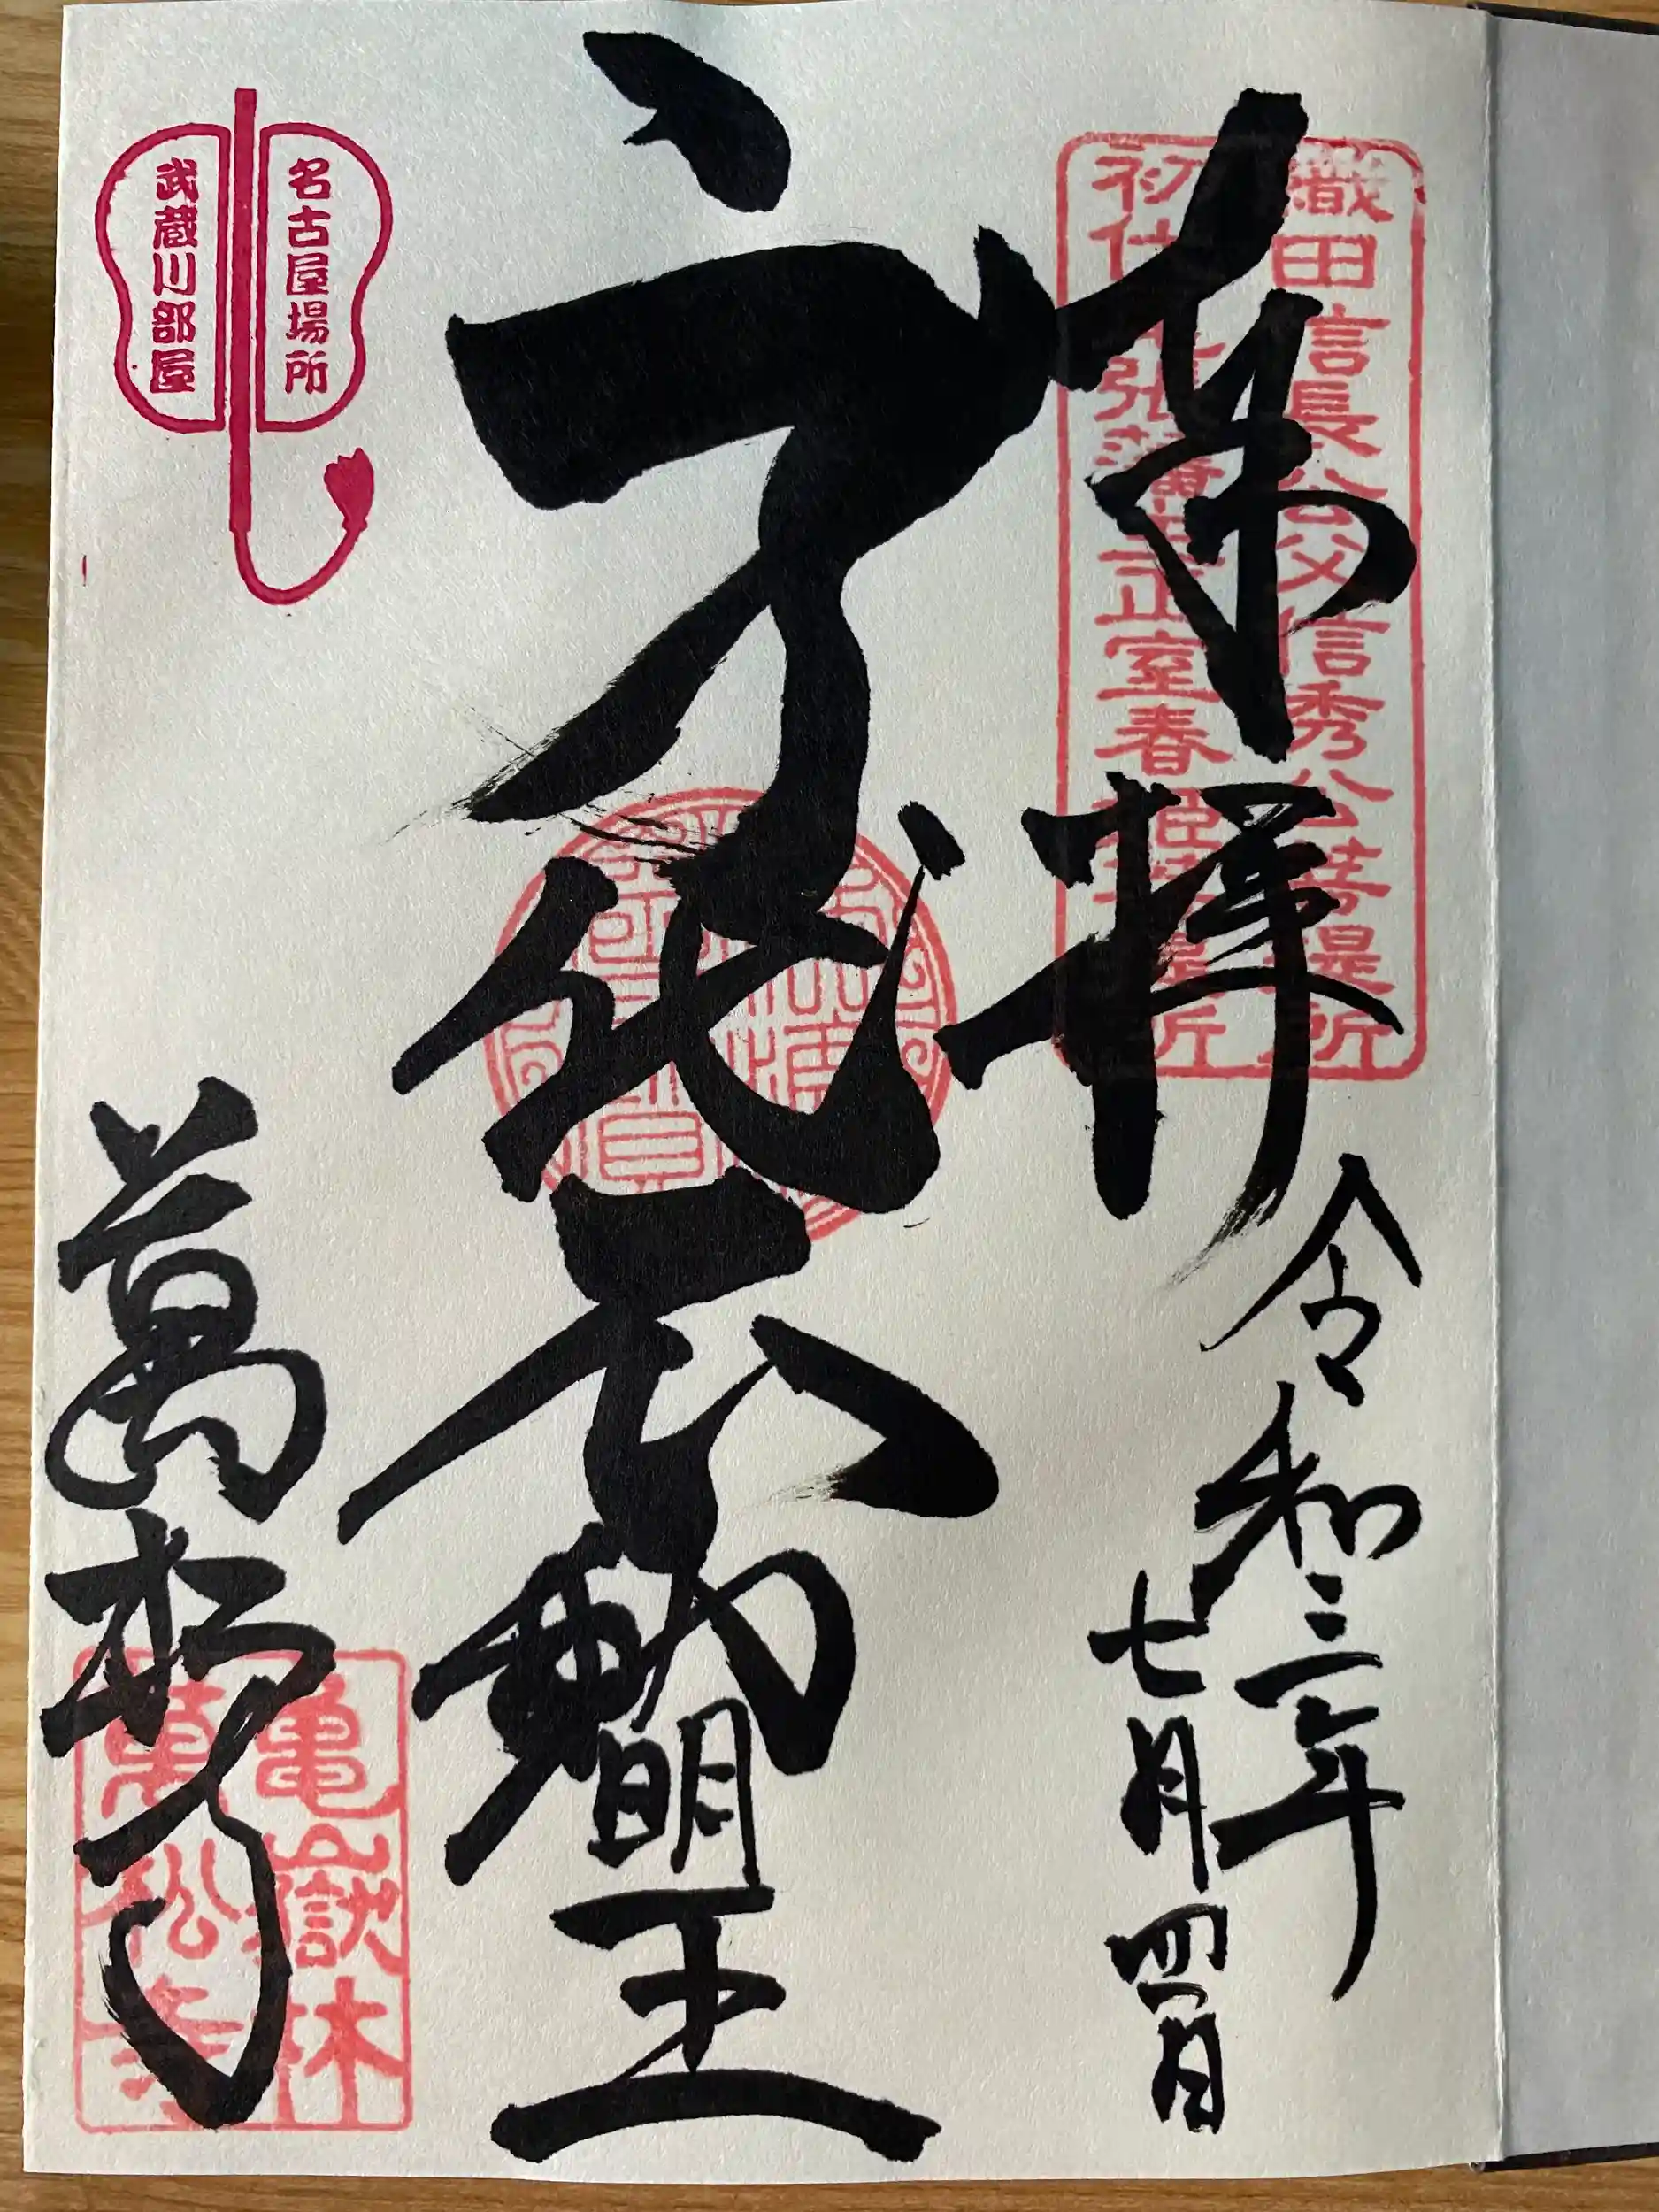 奉拝
織田信長公父信秀公菩提所
初代尾張藩主正室春姫菩提所
令和三年
七月四日
身代不動明王
名古屋場所
武蔵川部屋
萬松寺
亀嶽林
萬松寺